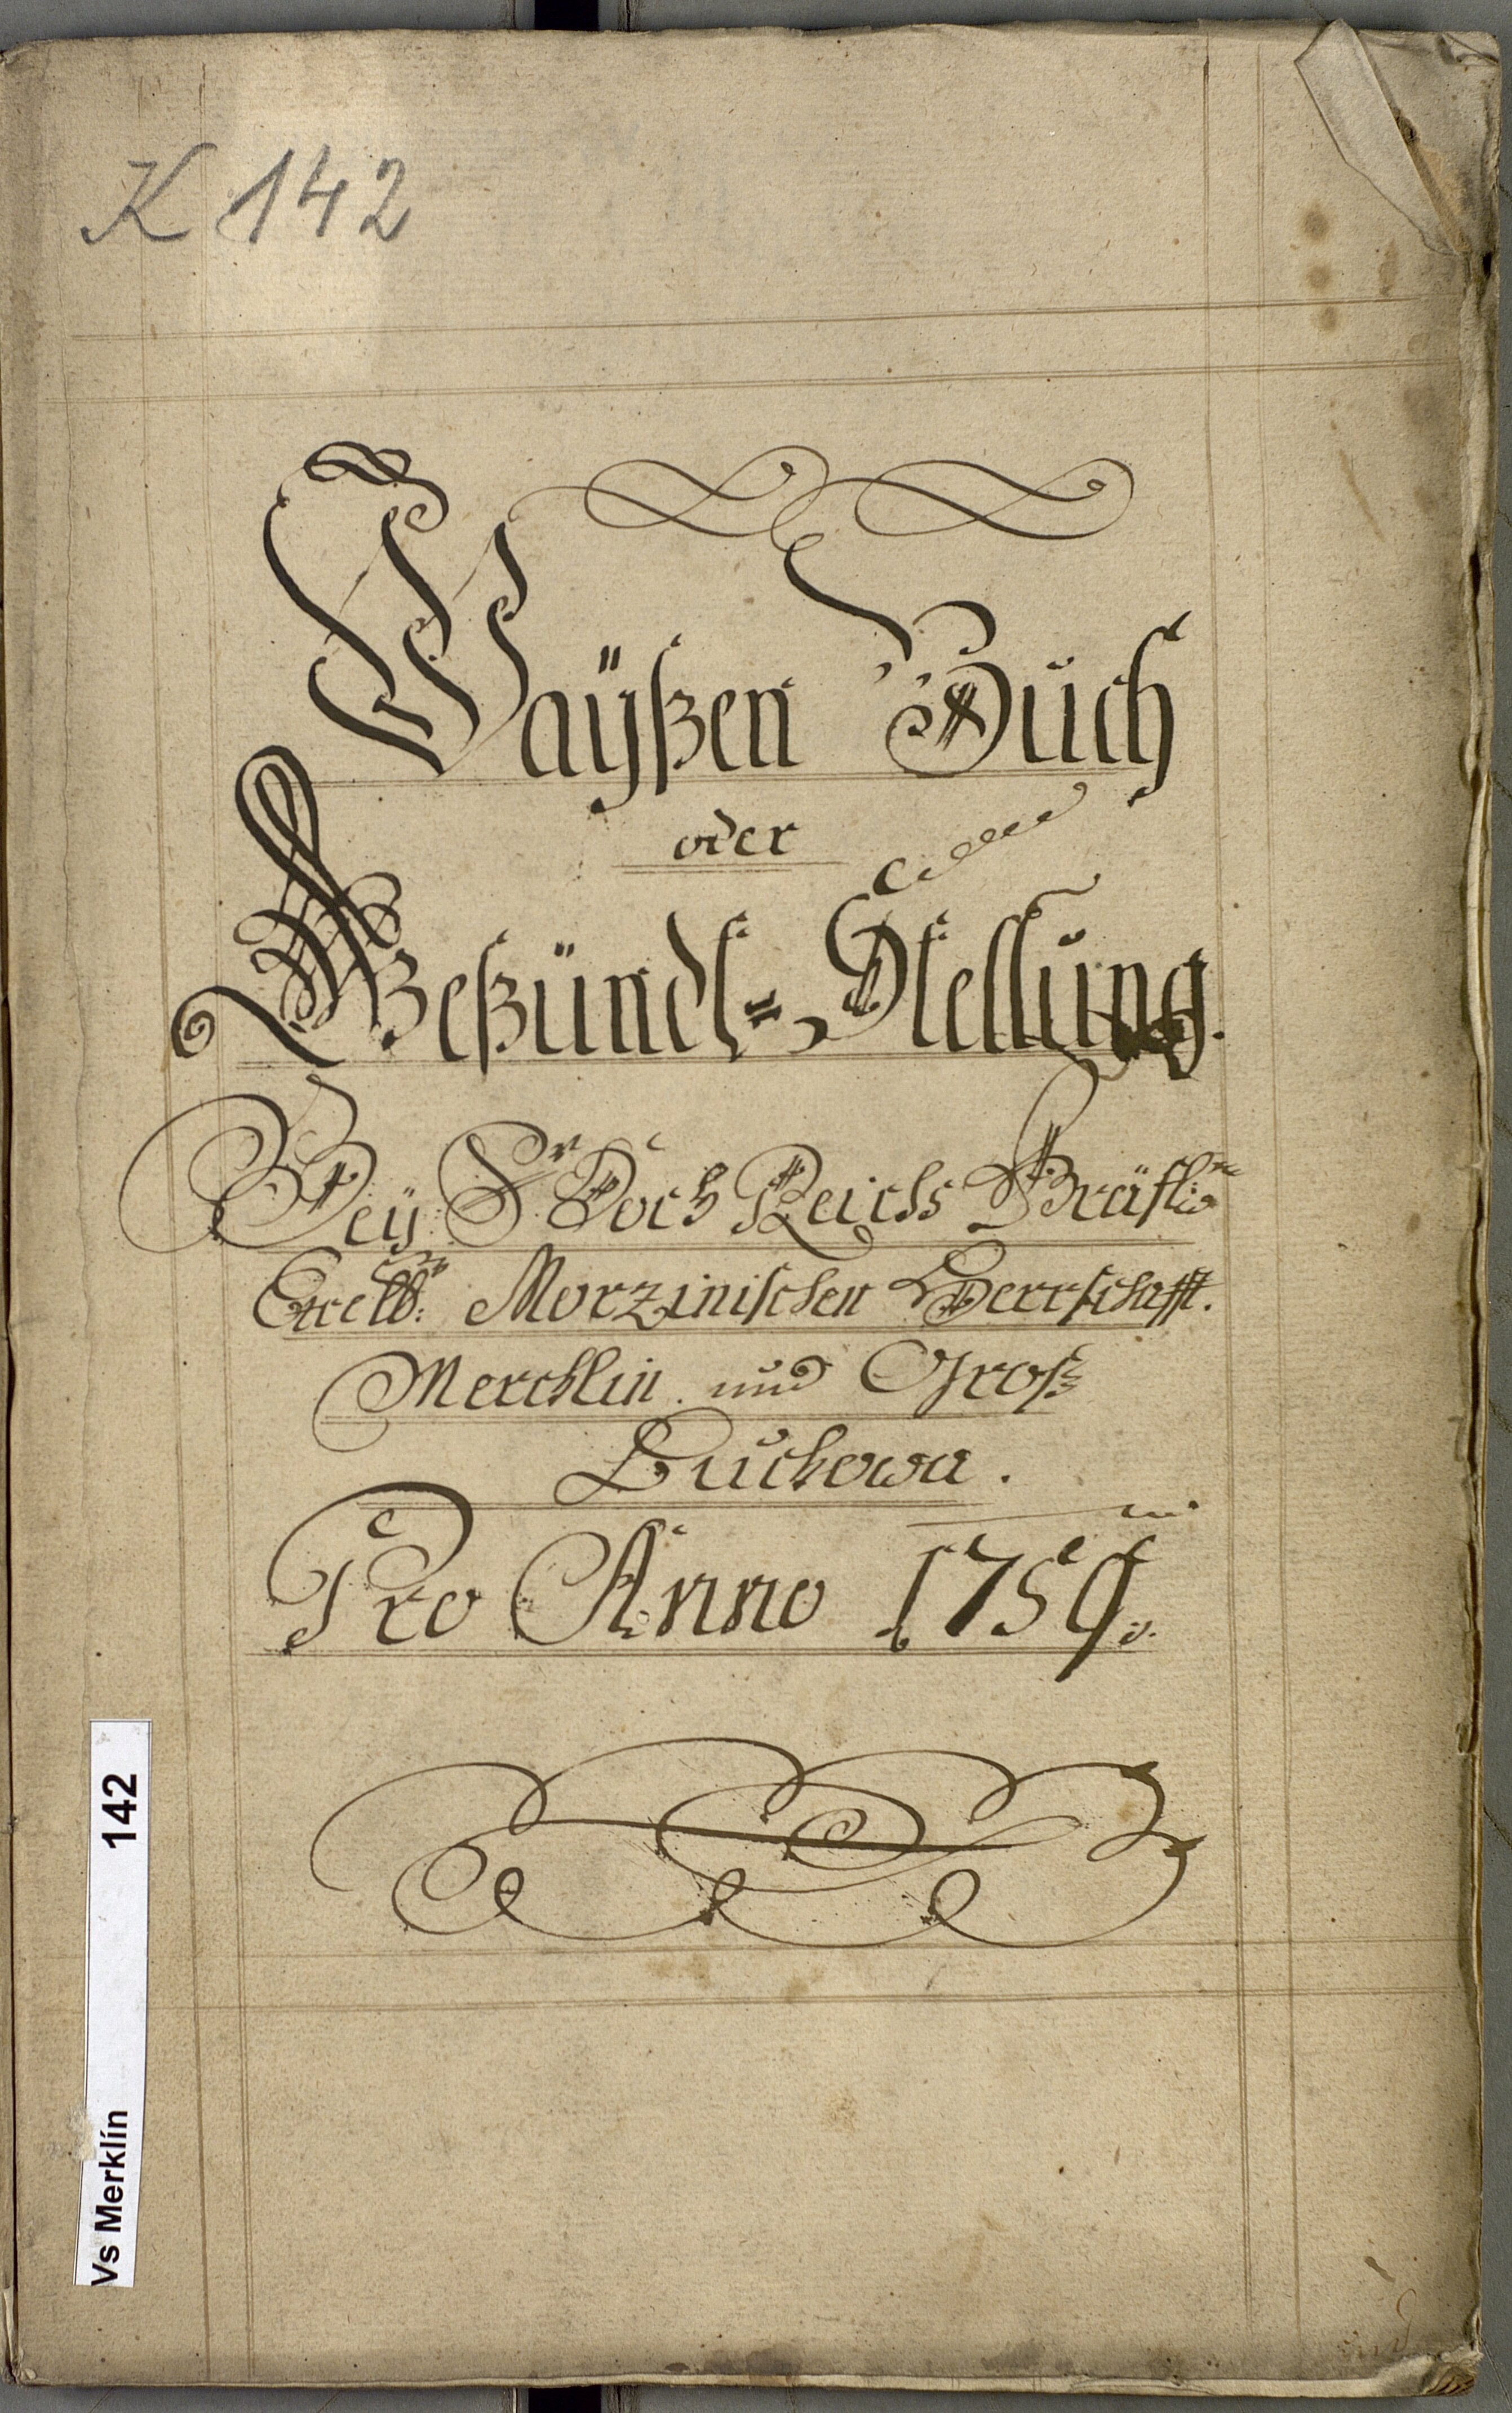 K 142
Waÿßen Buch
oder
Geßündl=Stellung.
Beÿ Sr Hoch Reichs Gräfln
Excell: Morzinischen Herrschafft.
Merchlin und Groß
Luckowa.
Pro Anno 1759.
Vs Merklín 142